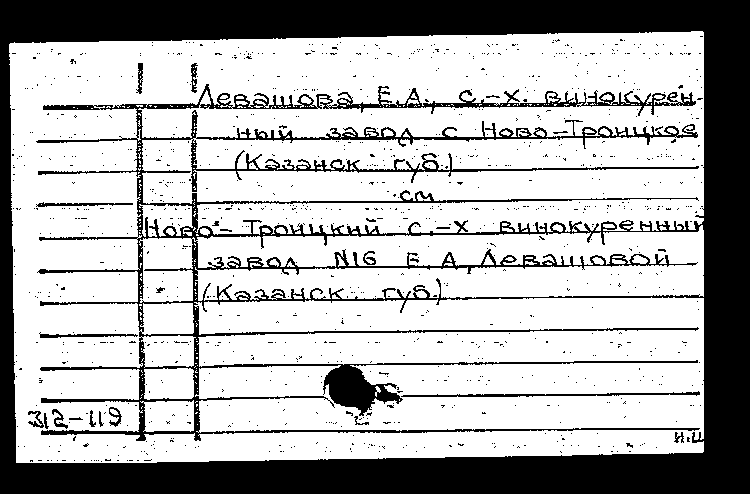 Левашова, Е.А., с.-х. винокурен-
ный завод с Ново-Троицкое
(Казанск губ.)
см
Ново-Троицкий с.-х винокуренный
завод N16 Е.А. Левашовой
(Казанск. губ.)
312-119
н.ц